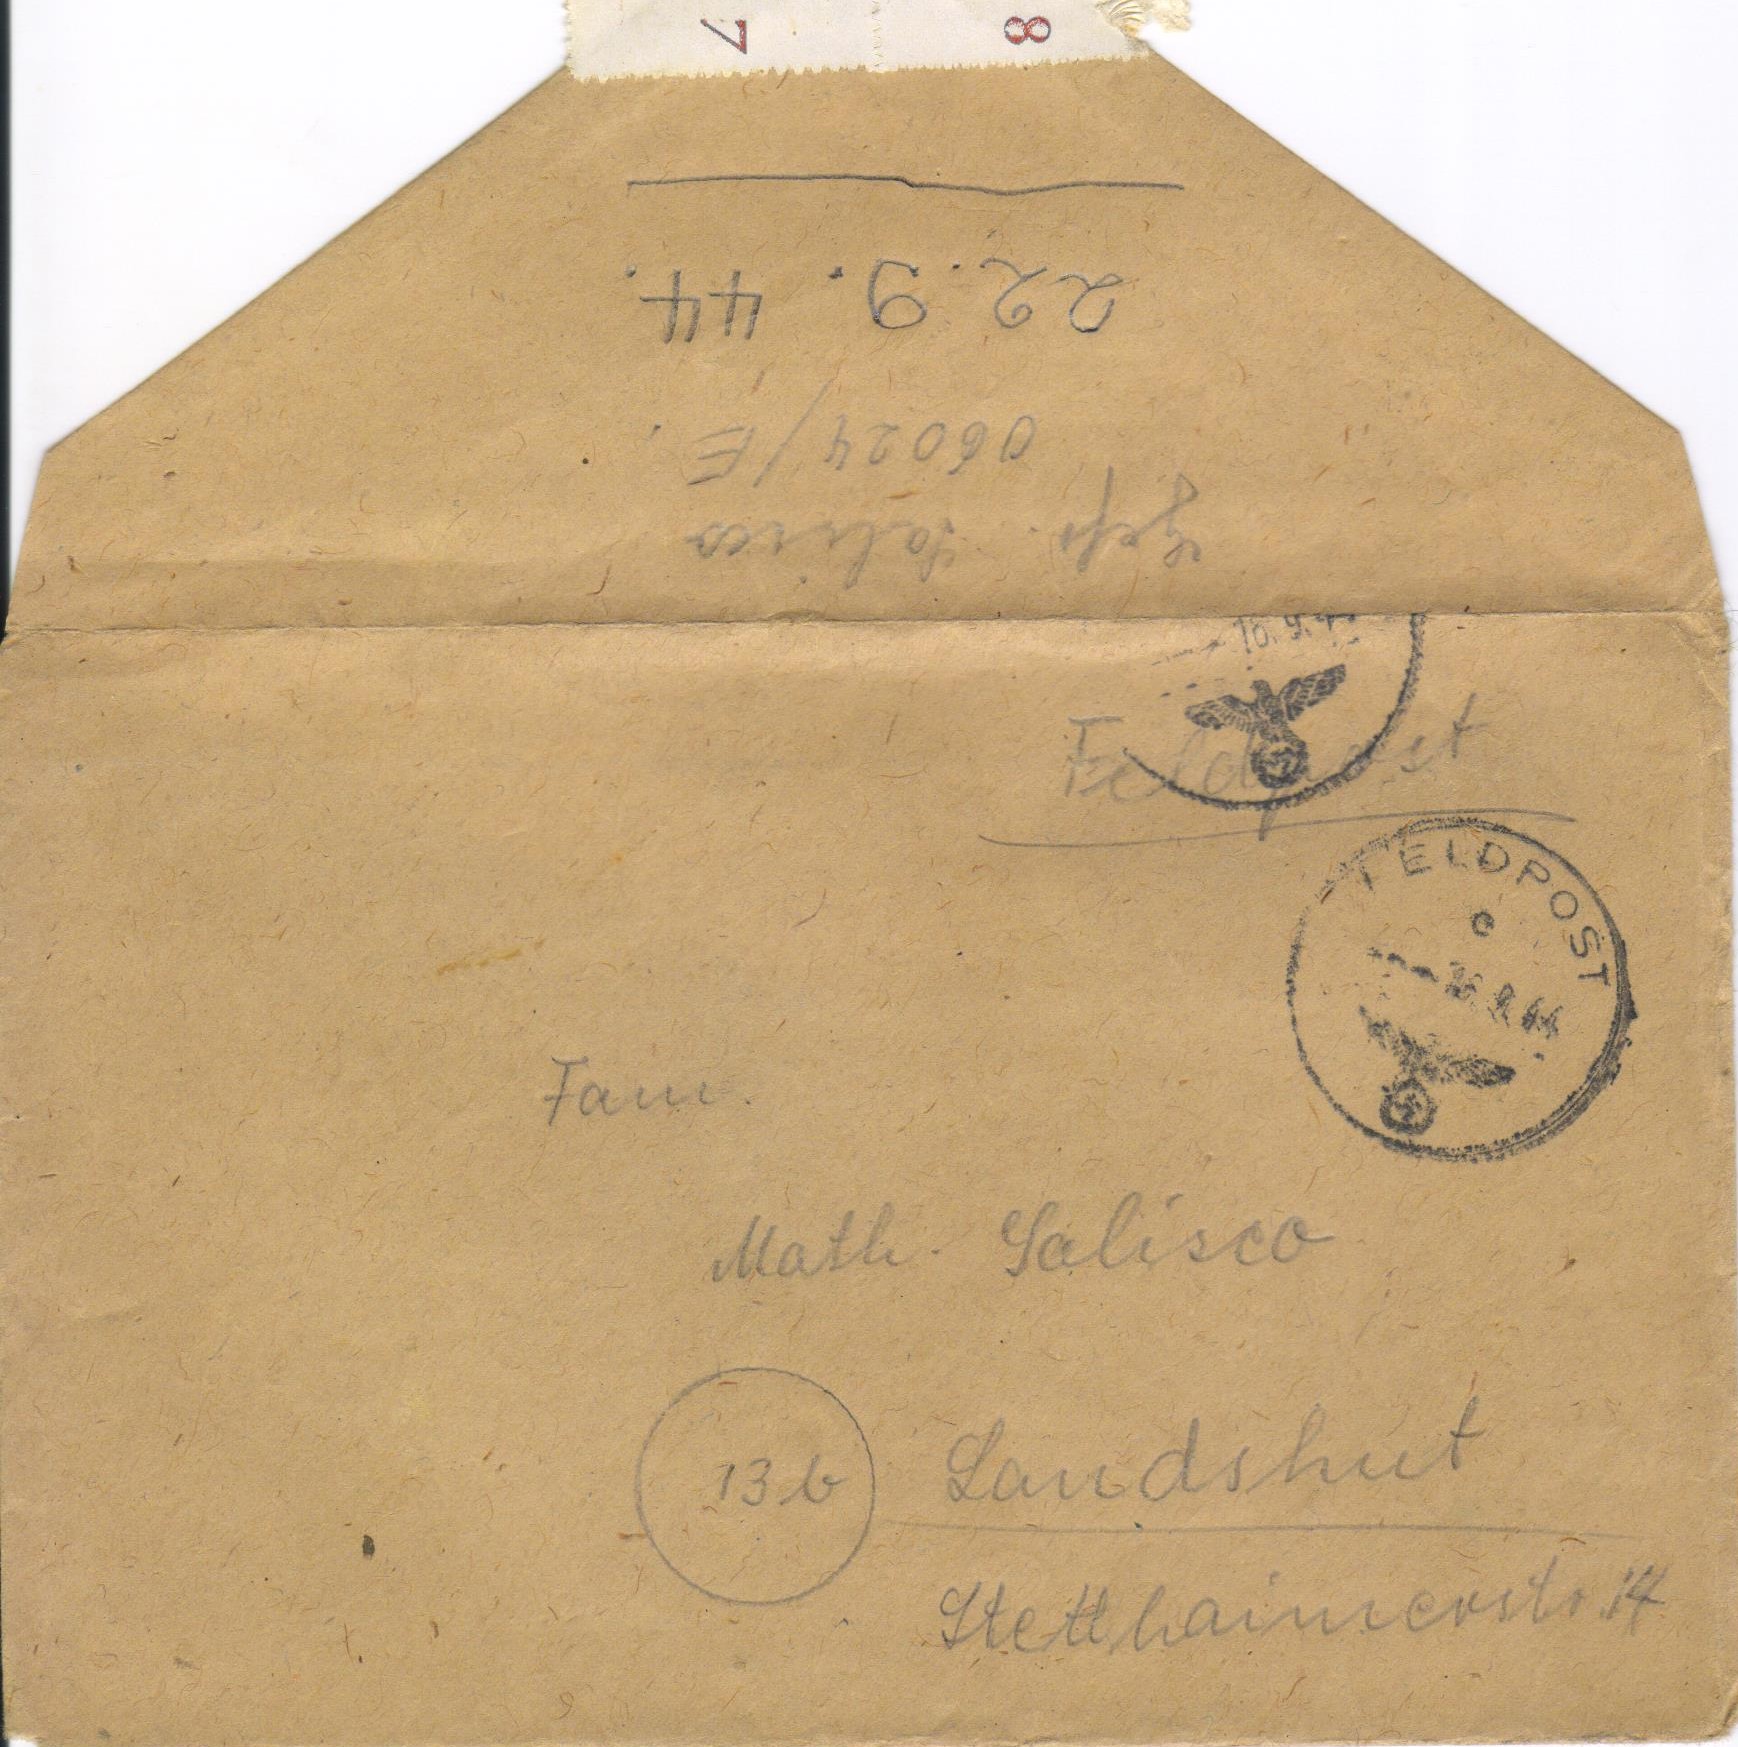 7 8
22. 9. 44.
06024/E.
Gefr. Salisco
16. 9. 4
Feldpost
FELDPOST
c
9.44
Fam.
Math. Salisco
13b Landshut
Stetthaimerstr. 14